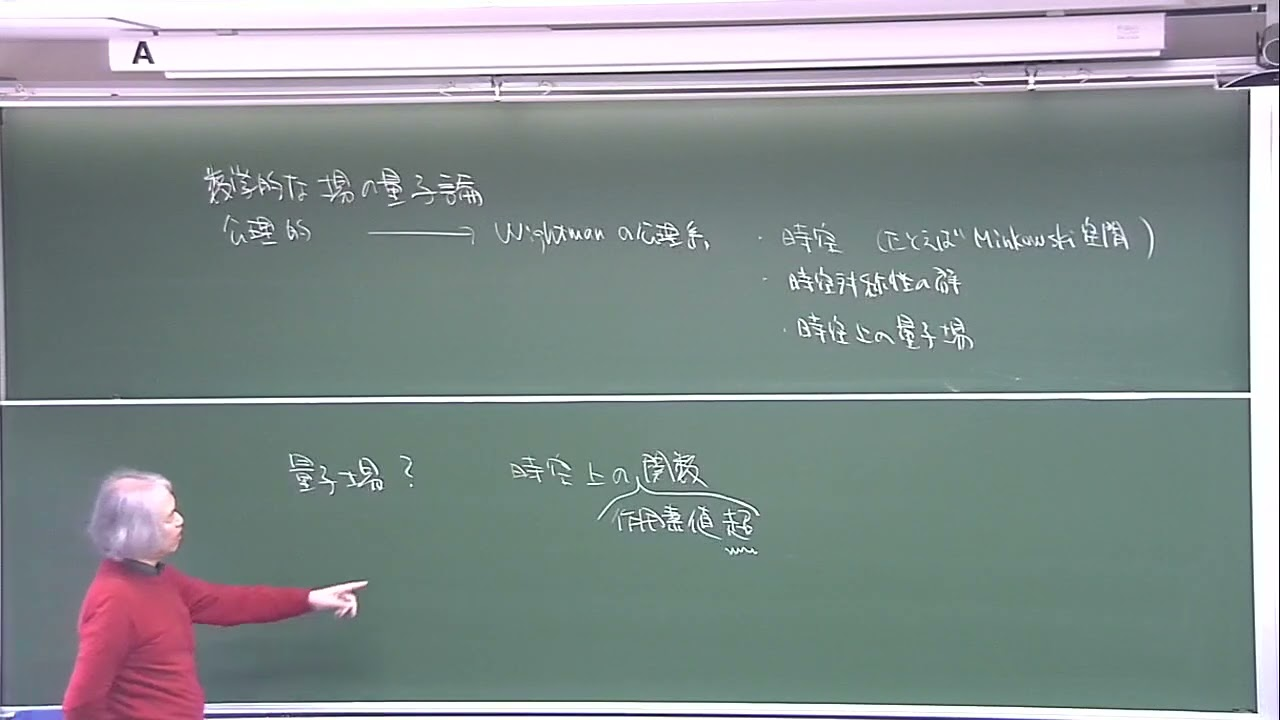 A
数学的な場の量子論
公理的 → Wightmanの公理系
・時空 (たとえば Minkowski 空間)
・時空対称性の群
・時空上の量子場
量子場?
時空上の関数
作用素値超